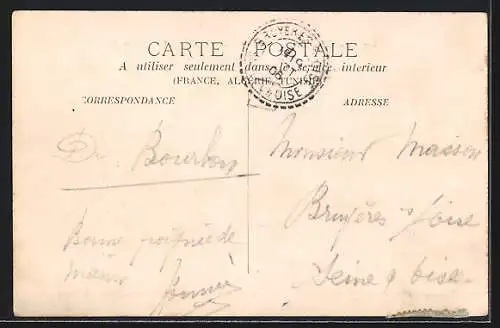 CARTE POSTALE
A utiliser seulement dans le service intérieur
(FRANCE, ALGÉRIE, TUNISIE)
CORRESPONDANCE
ADRESSE
BRUYERES
OISE
Dr. Bourbon
Bonne poignée de
main
Monsieur Masson
Bruyères s/ Oise
Seine & Oise